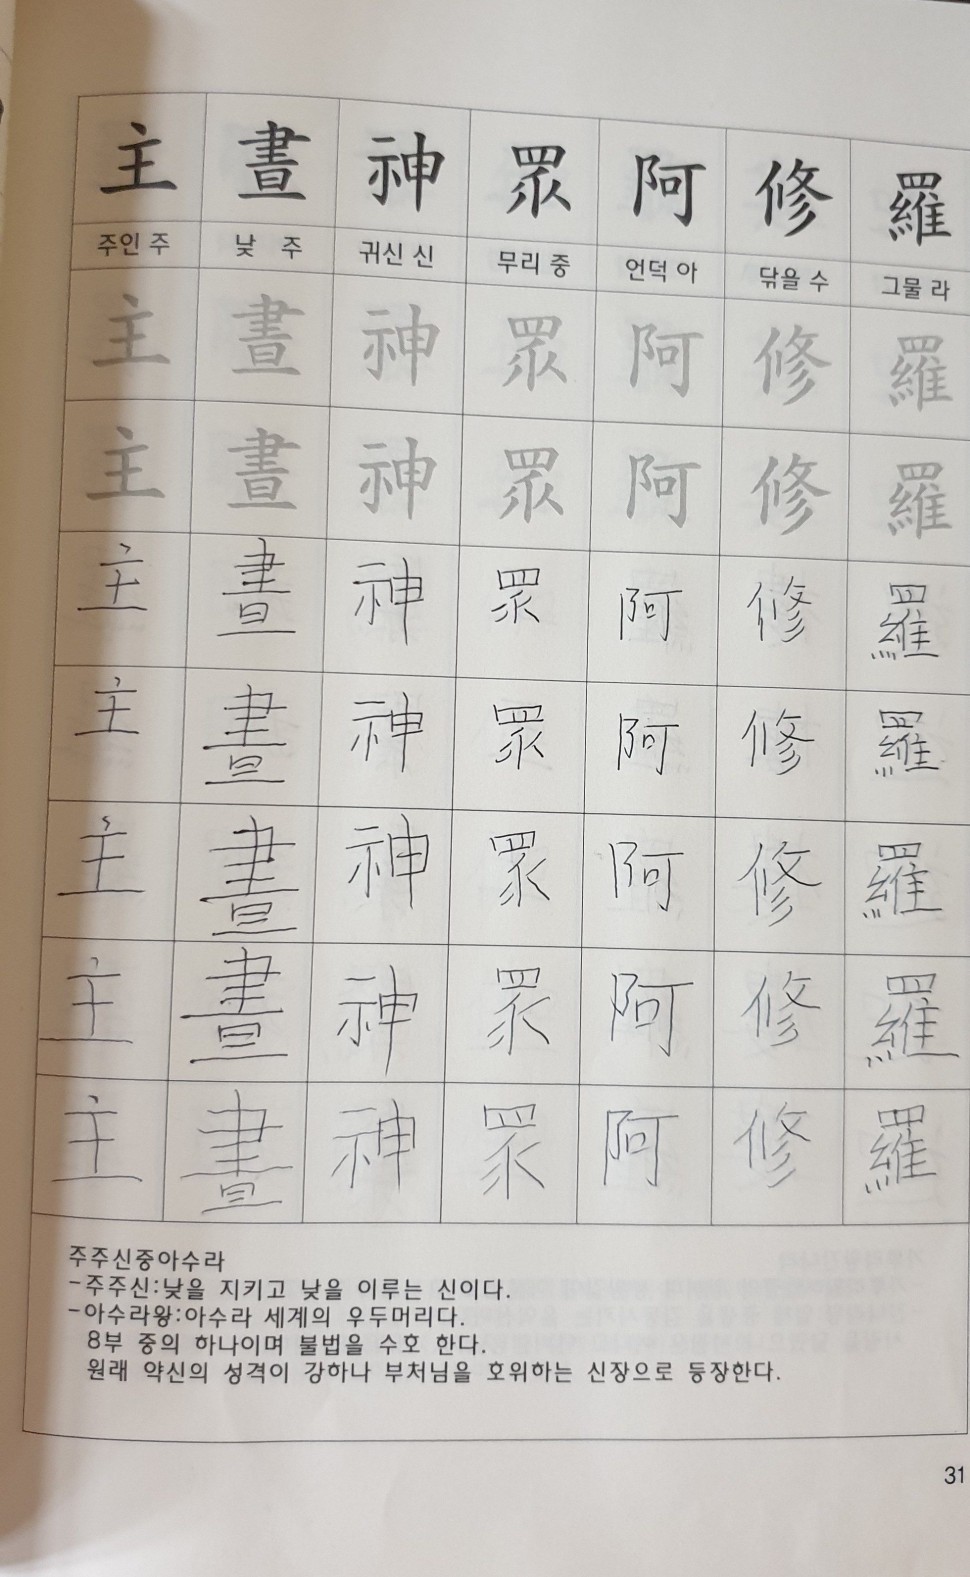 主 晝 神 眾 阿 修 羅
주인 주 낮 주 귀신 신 무리 중 언덕 아 닦을 수 그물 라
主 晝 神 眾 阿 修 羅
主 晝 神 眾 阿 修 羅
主 晝 神 眾 阿 修 羅
主 晝 神 眾 阿 修 羅
主 晝 神 眾 阿 修 羅
主 晝 神 眾 阿 修 羅
主 晝 神 眾 阿 修 羅
주주신중아수라
-주주신:낮을 지키고 낮을 이루는 신이다.
-아수라왕:아수라 세계의 우두머리다.
8부 중의 하나이며 불법을 수호 한다.
원래 약신의 성격이 강하나 부처님을 호위하는 신장으로 등장한다.
31